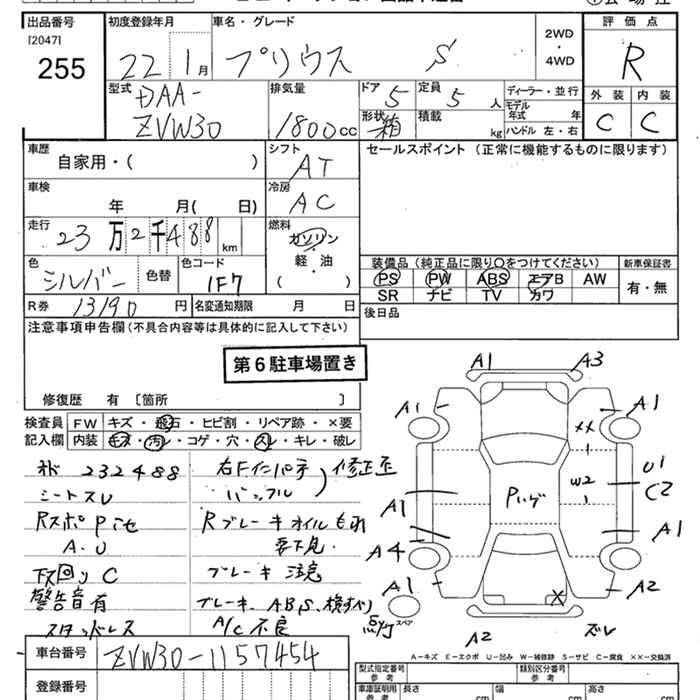 出品番号 初度登録年月 車名・グレード 評価点
[2047]
255 22 1月 プリウス S 2WD・4WD R
型式 排気量 ドア 定員 ディーラー・並行 外装 内装
DAA-
ZVW30 1800cc 5 5人 モデル年式 年 C C
形状 箱 積載 kg ハンドル 左・右
車歴 シフト セールスポイント (正常に機能するものに限ります)
自家用・( ) AT
車検 冷房
年 月( 日) AC
走行 燃料
23万2千488km ガソリン
軽・油
( )
色 色替 色コード 装備品 (純正品に限り○をつけてください) 新車保証書
シルバー 1F7 PS PW ABS エアB AW 有・無
SR ナビ TV カワ
R券 13190円 名変通知期限 月 日 後日品
注意事項申告欄(不具合内容等は具体的に記入して下さい)
第6駐車場置き
修復歴 有 〔箇所 〕
検査員 FW キズ・飛石・ヒビ割・リペア跡・×要
記入欄 内装 キズ・汚レ・コゲ・穴・スレ・キレ・破レ
232488 右Fインパネ
シートスレ バッフル 修正歪
A.U Rブレーキオイルもれ
要下見.
下回りC ブレーキ 注意
警告音有 ブレーキ、ABS、横すべり 点灯
スタッドレス A/C不良
A1 A3
A1 A1
XX
W2 U1
C2
A1 A1
A4
A1 A2
X
スペア
A2 ズレ
A-キズ E-エクボ U-凹み W-補修跡 S-サビ C-腐食 XX-交換済
車台番号 ZVW30-1157454
登録番号
型式指定番号 参考 類別区分番号 参考
車庫証明用 参考 長さ cm 幅 cm 高さ cm